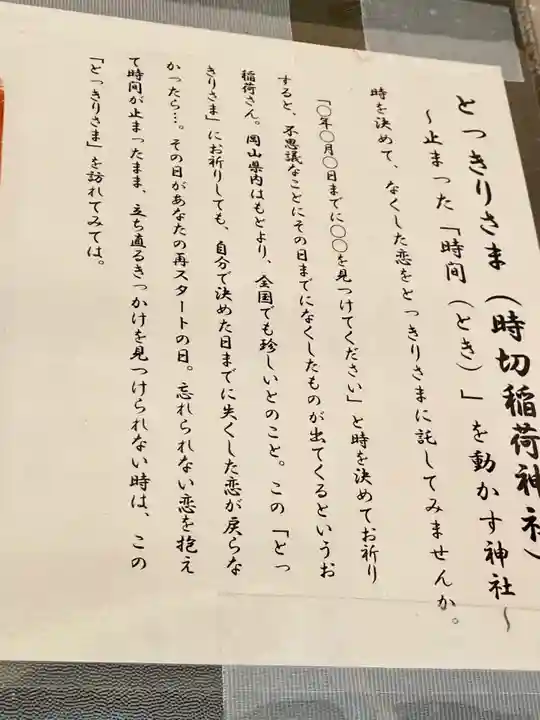 とっきりさま(時切稲荷神社)
～止まった「時間(とき)」を動かす神社～
時を決めて、なくした恋をとっきりさまに託してみませんか。
「〇年〇月〇日までに〇〇を見つけてください」と時を決めてお祈り
すると、不思議なことにその日までになくしたものが出てくるというお
稲荷さん。岡山県内はもとより、全国でも珍しいとのこと。この「とっ
きりさま」にお祈りしても、自分で決めた日までに失くした恋が戻らな
かったら…。その日があなたの再スタートの日。忘れられない恋を抱え
て時間が止まったまま、立ち直るきっかけを見つけられない時は、この
「とっきりさま」を訪れてみては。